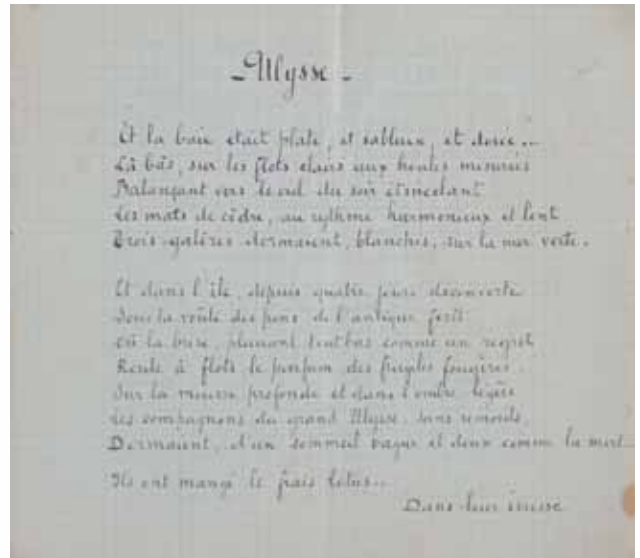 Ulysse
Et la baie était plate, et sableuse, et dorée...
Là bas, sur les flots clairs aux houles mesurées
Balançant vers le ciel du soir étincelant
Les mats de cèdre, au rythme harmonieux et lent
Trois galères dormaient, blanches, sur la mer verte.
Et dans l'île, depuis quatre jours découverte
Sous la voûte des pins de l'antique forêt
Où la brise, planant tout bas comme un regret
Roule à flots le parfum des frugles fougères
Sur la mousse profonde et dans l'ombre légère
Les compagnons du grand Ulysse, sans remords,
Dormaient, d'un sommeil vague et doux comme la mort
Ils ont mangé le frais lotus...
Dans leur ivresse